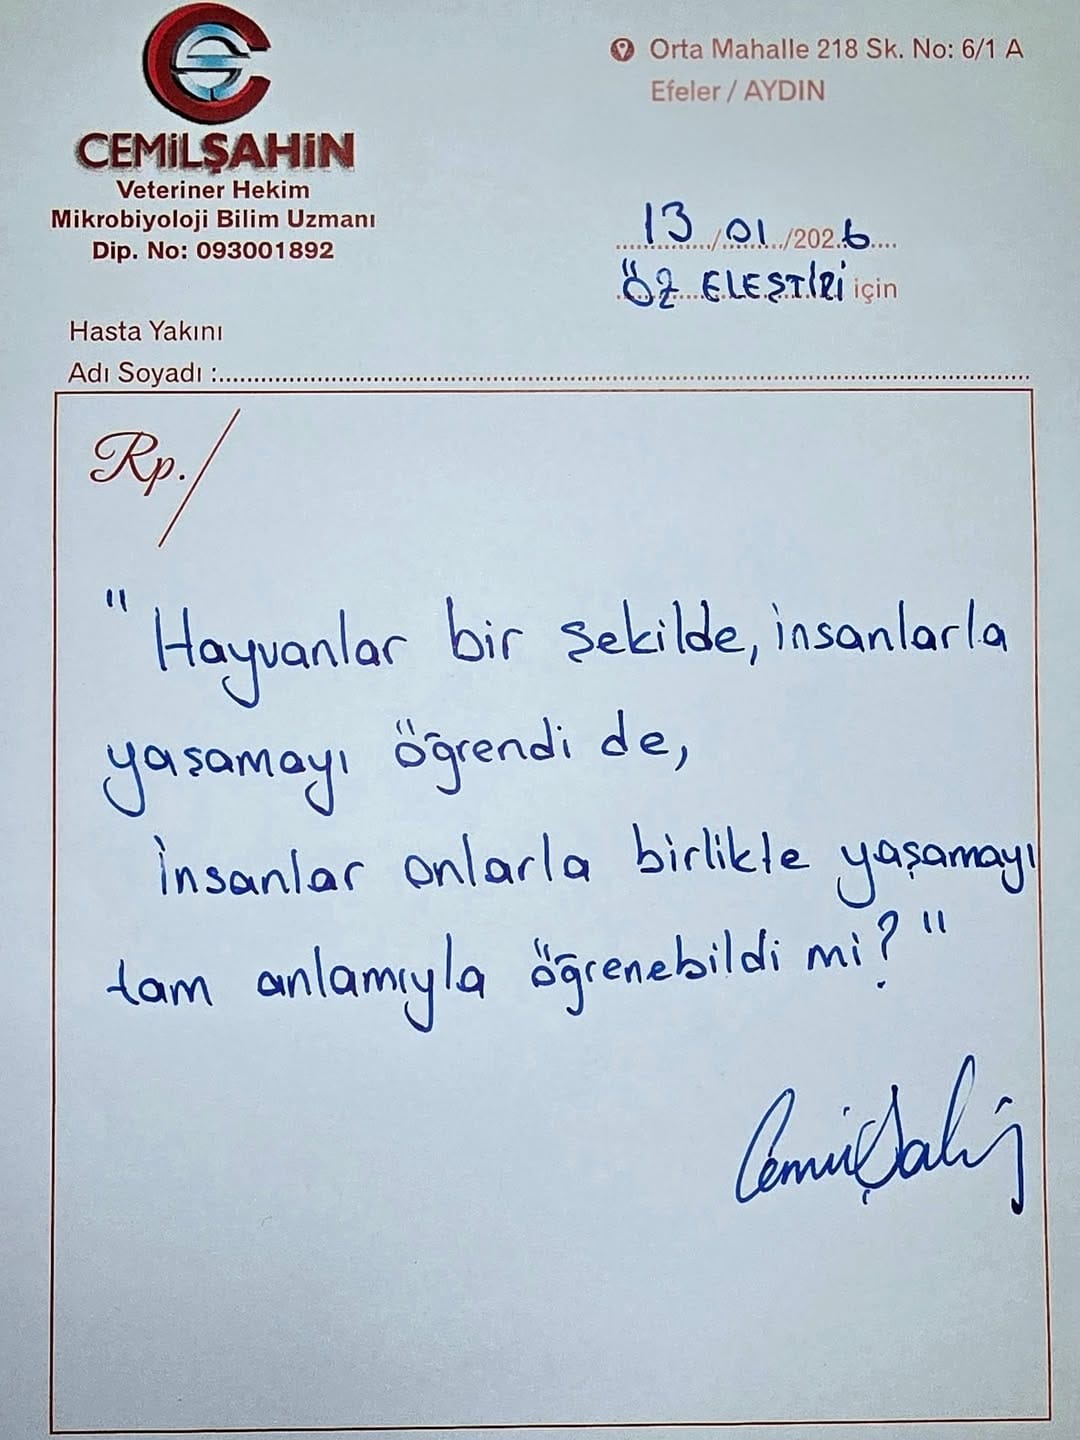 CEMİLŞAHİN
Veteriner Hekim
Mikrobiyoloji Bilim Uzmanı
Dip. No: 093001892
Orta Mahalle 218 Sk. No: 6/1 A
Efeler / AYDIN
13/01/2026
ÖZ ELEŞTİRİ için
Hasta Yakını
Adı Soyadı :
Rp./
"Hayvanlar bir şekilde, insanlarla
yaşamayı öğrendi de,
İnsanlar onlarla birlikte yaşamayı
tam anlamıyla öğrenebildi mi?"
Cemil Şahin